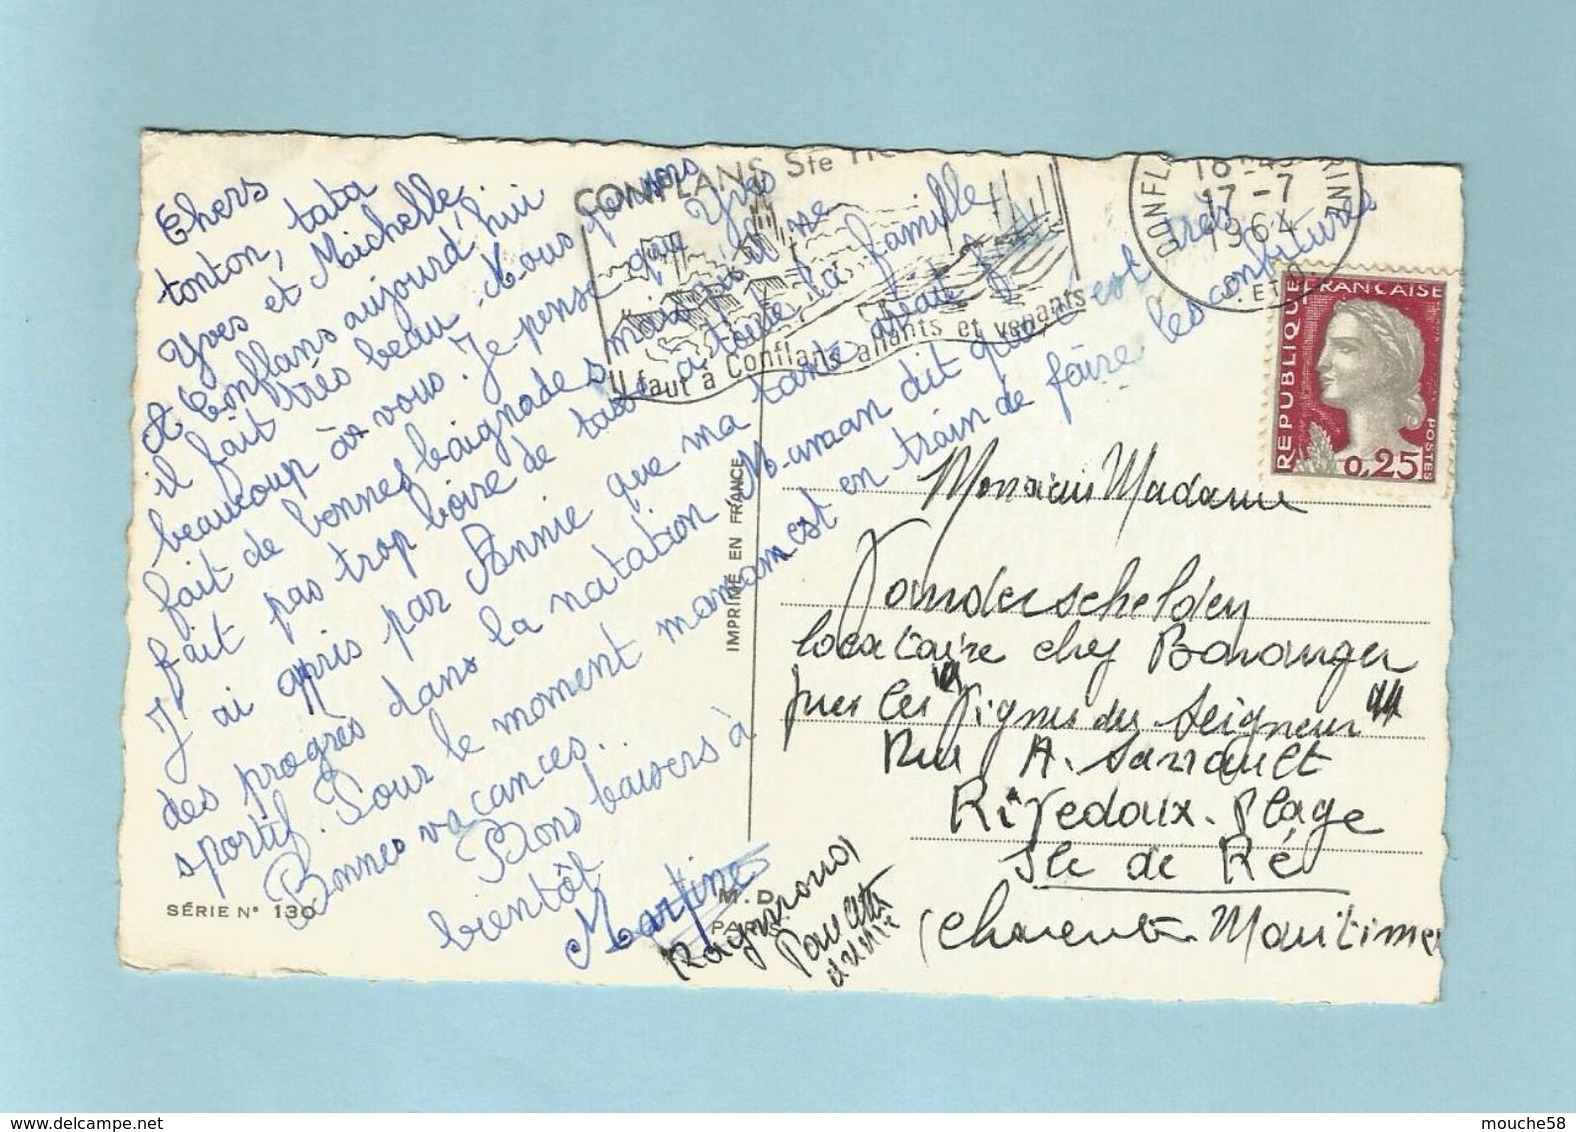 Chers
tonton, tata
Yves et Michelle,
A Conflans aujourd'hui
il fait très beau. Nous pensons
beaucoup à vous. Je pense que Yves
fait de bonnes baignades mais qu'il ne
fait pas trop boire de tasse à toute la famille
J'ai appris par Annie que ma tante avait fait
des progrès dans la natation. Maman dit que c'est très
sportif. Pour le moment maman est en train de faire les confitures
Bonnes vacances.
Bons baisers à
bientôt
Martine
Raymond
Paulette
CONFLANS Ste
Il faut à Conflans allants et venants
17-7
1964
S. ET O.
REPUBLIQUE FRANÇAISE
POSTES
0,25
IMPRIMÉ EN FRANCE
Monsieur Madame
Vanderschelden
locataire chez Baranger
près les "Vignes du Seigneur"
Rue A. Sarrault
Rivedoux-Plage
Ile de Ré
(Charente-Maritime
SÉRIE N° 130
M.D.
PARIS
mouche58